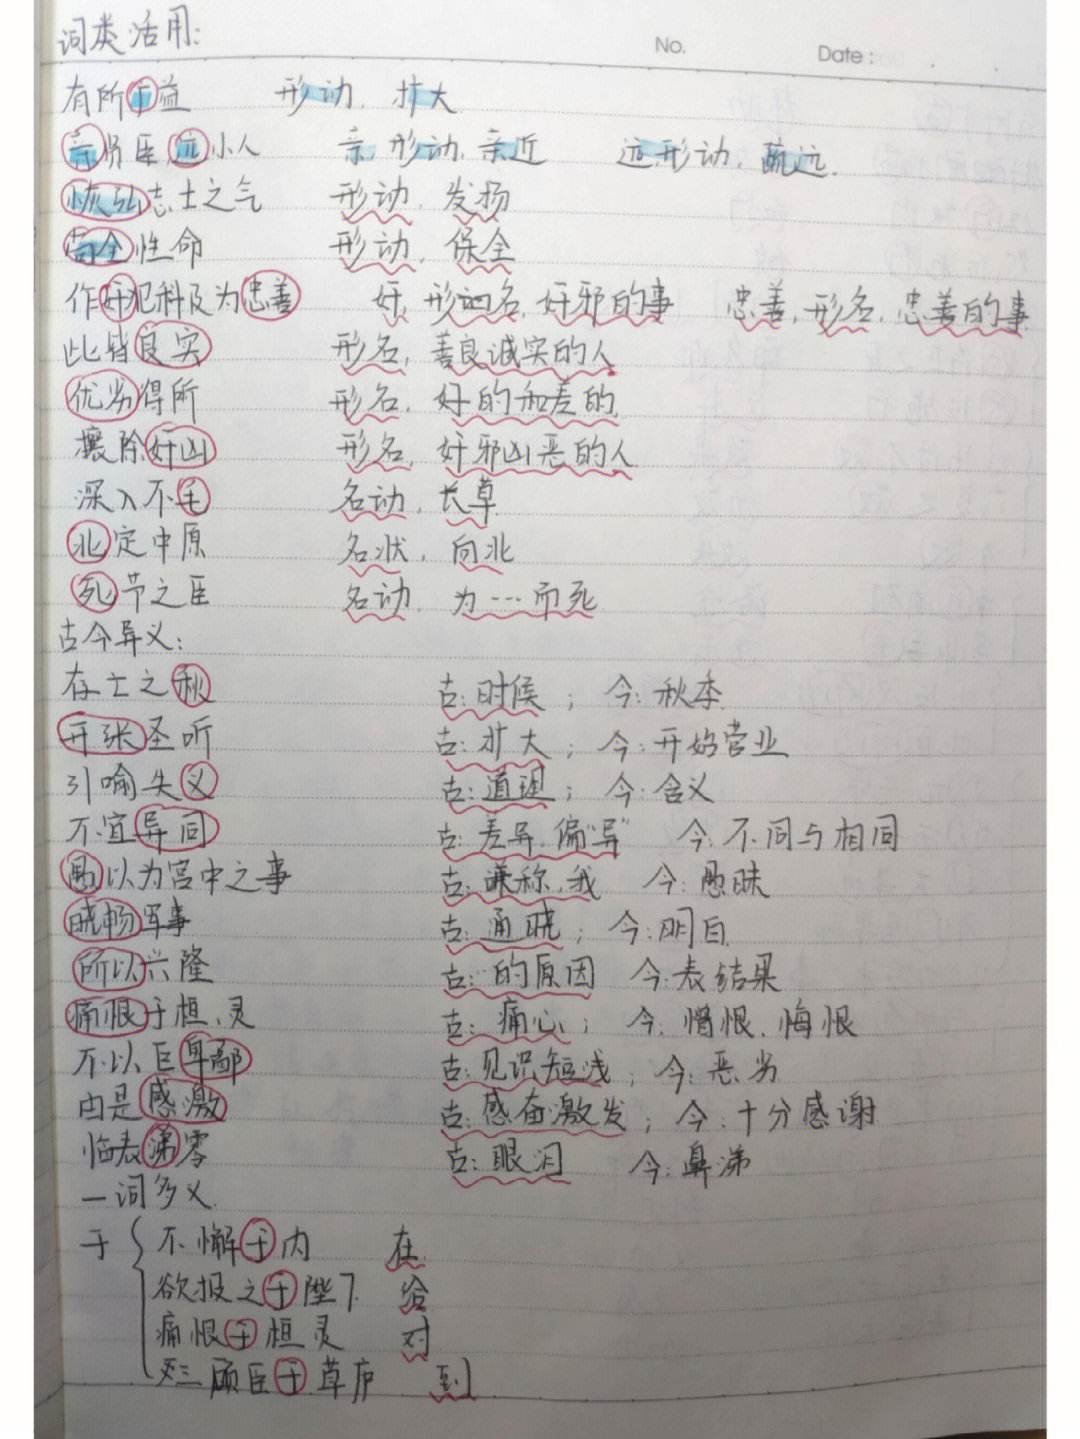 词类活用:
No. Date:
有所广益 形动, 扩大
亲贤臣远小人 亲, 形动, 亲近 远, 形动, 疏远.
恢弘志士之气 形动, 发扬
苟全性命 形动, 保全
作奸犯科及为忠善 奸, 形动名, 奸邪的事 忠善, 形名, 忠善的事
此皆良实 形名, 善良诚实的人
优劣得所 形名, 好的和差的
攘除奸凶 形名, 奸邪凶恶的人
深入不毛 名动, 长草
北定中原 名状, 向北
死节之臣 名动, 为…而死
古今异义:
存亡之秋 古: 时候; 今: 秋季
开张圣听 古: 扩大; 今: 开始营业
引喻失义 古: 道理; 今: 含义
不宜异同 古: 差异, 偏“异” 今: 不同与相同
愚以为宫中之事 古: 谦称, 我 今: 愚昧
晓畅军事 古: 通晓; 今: 明白
所以兴隆 古: …的原因 今: 表结果
痛恨于桓、灵 古: 痛心; 今: 憎恨、悔恨
不以臣卑鄙 古: 见识短浅; 今: 恶劣
由是感激 古: 感奋激发; 今: 十分感谢
临表涕零 古: 眼泪 今: 鼻涕
一词多义
于 不懈于内 在
欲报之于陛下 给
痛恨于桓灵 对
三顾臣于草庐 到